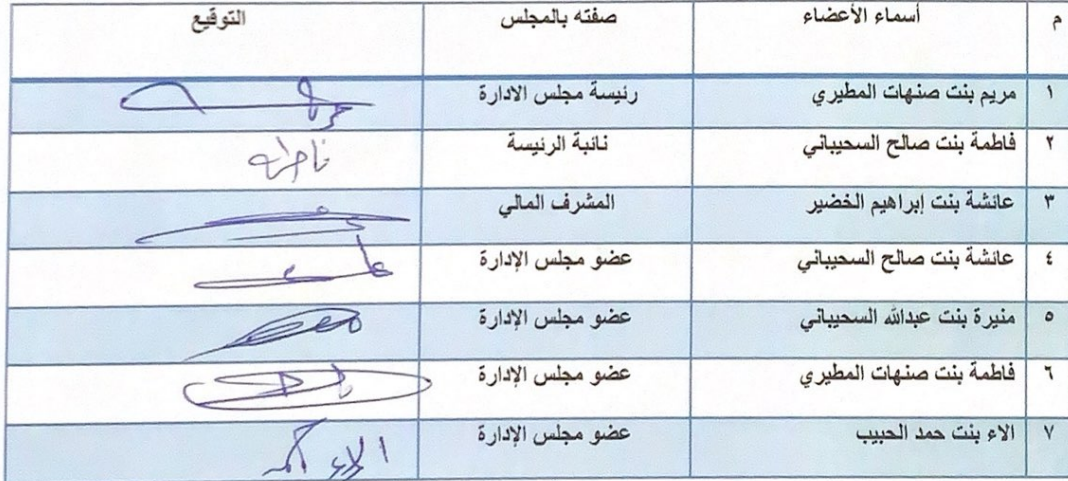 م أسماء الأعضاء صفته بالمجلس التوقيع
١ مريم بنت صنهات المطيري رئيسة مجلس الادارة
٢ فاطمة بنت صالح السحيباني نائبة الرئيسة
٣ عائشة بنت إبراهيم الخضير المشرف المالي
٤ عائشة بنت صالح السحيباني عضو مجلس الإدارة
٥ منيرة بنت عبدالله السحيباني عضو مجلس الإدارة
٦ فاطمة بنت صنهات المطيري عضو مجلس الإدارة
٧ الاء بنت حمد الحبيب عضو مجلس الإدارة الاء